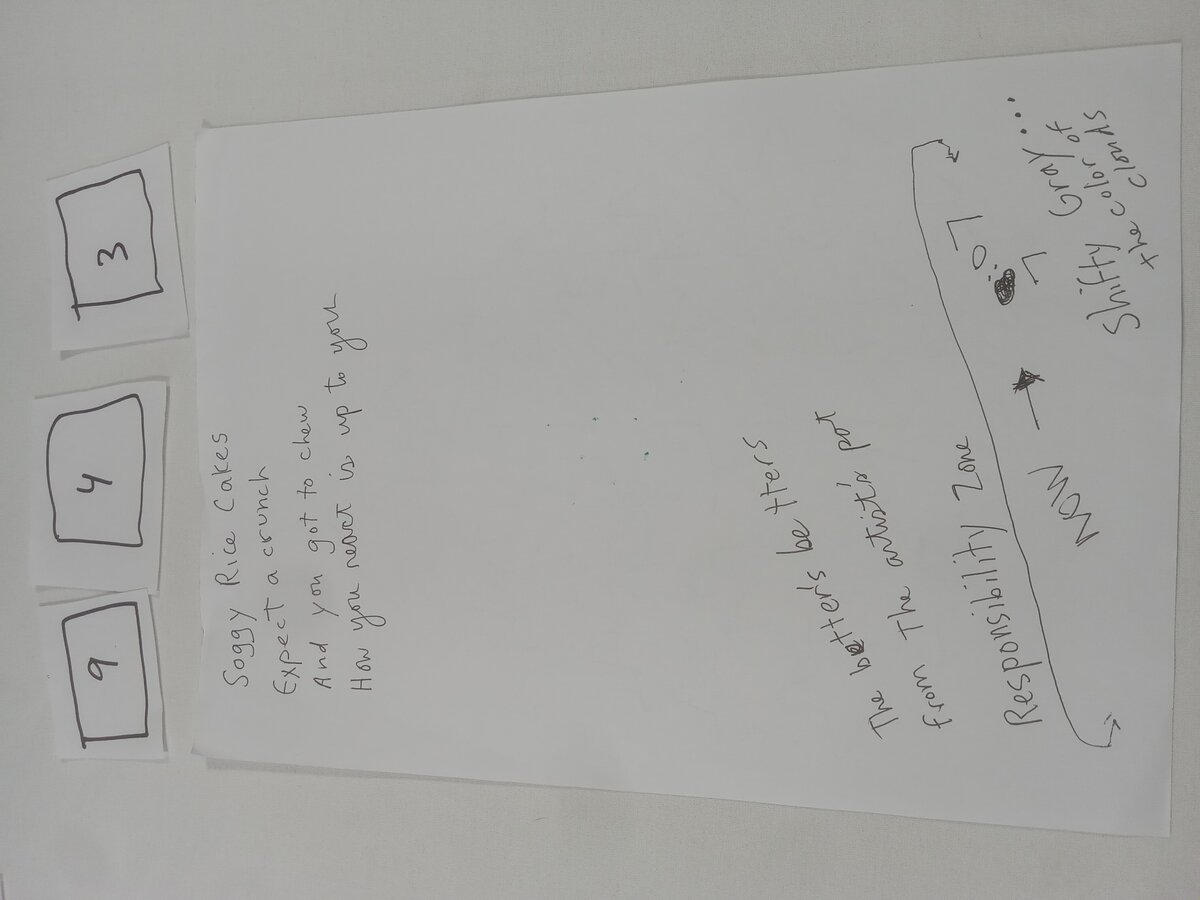 9 4 3
Soggy Rice Cakes
Expect a crunch
And you got to chew
How you react is up to you
The better's betters
from The artist's pot
Responsibility Zone
NOW → 7
Shifty Gray...
the color of
clouds